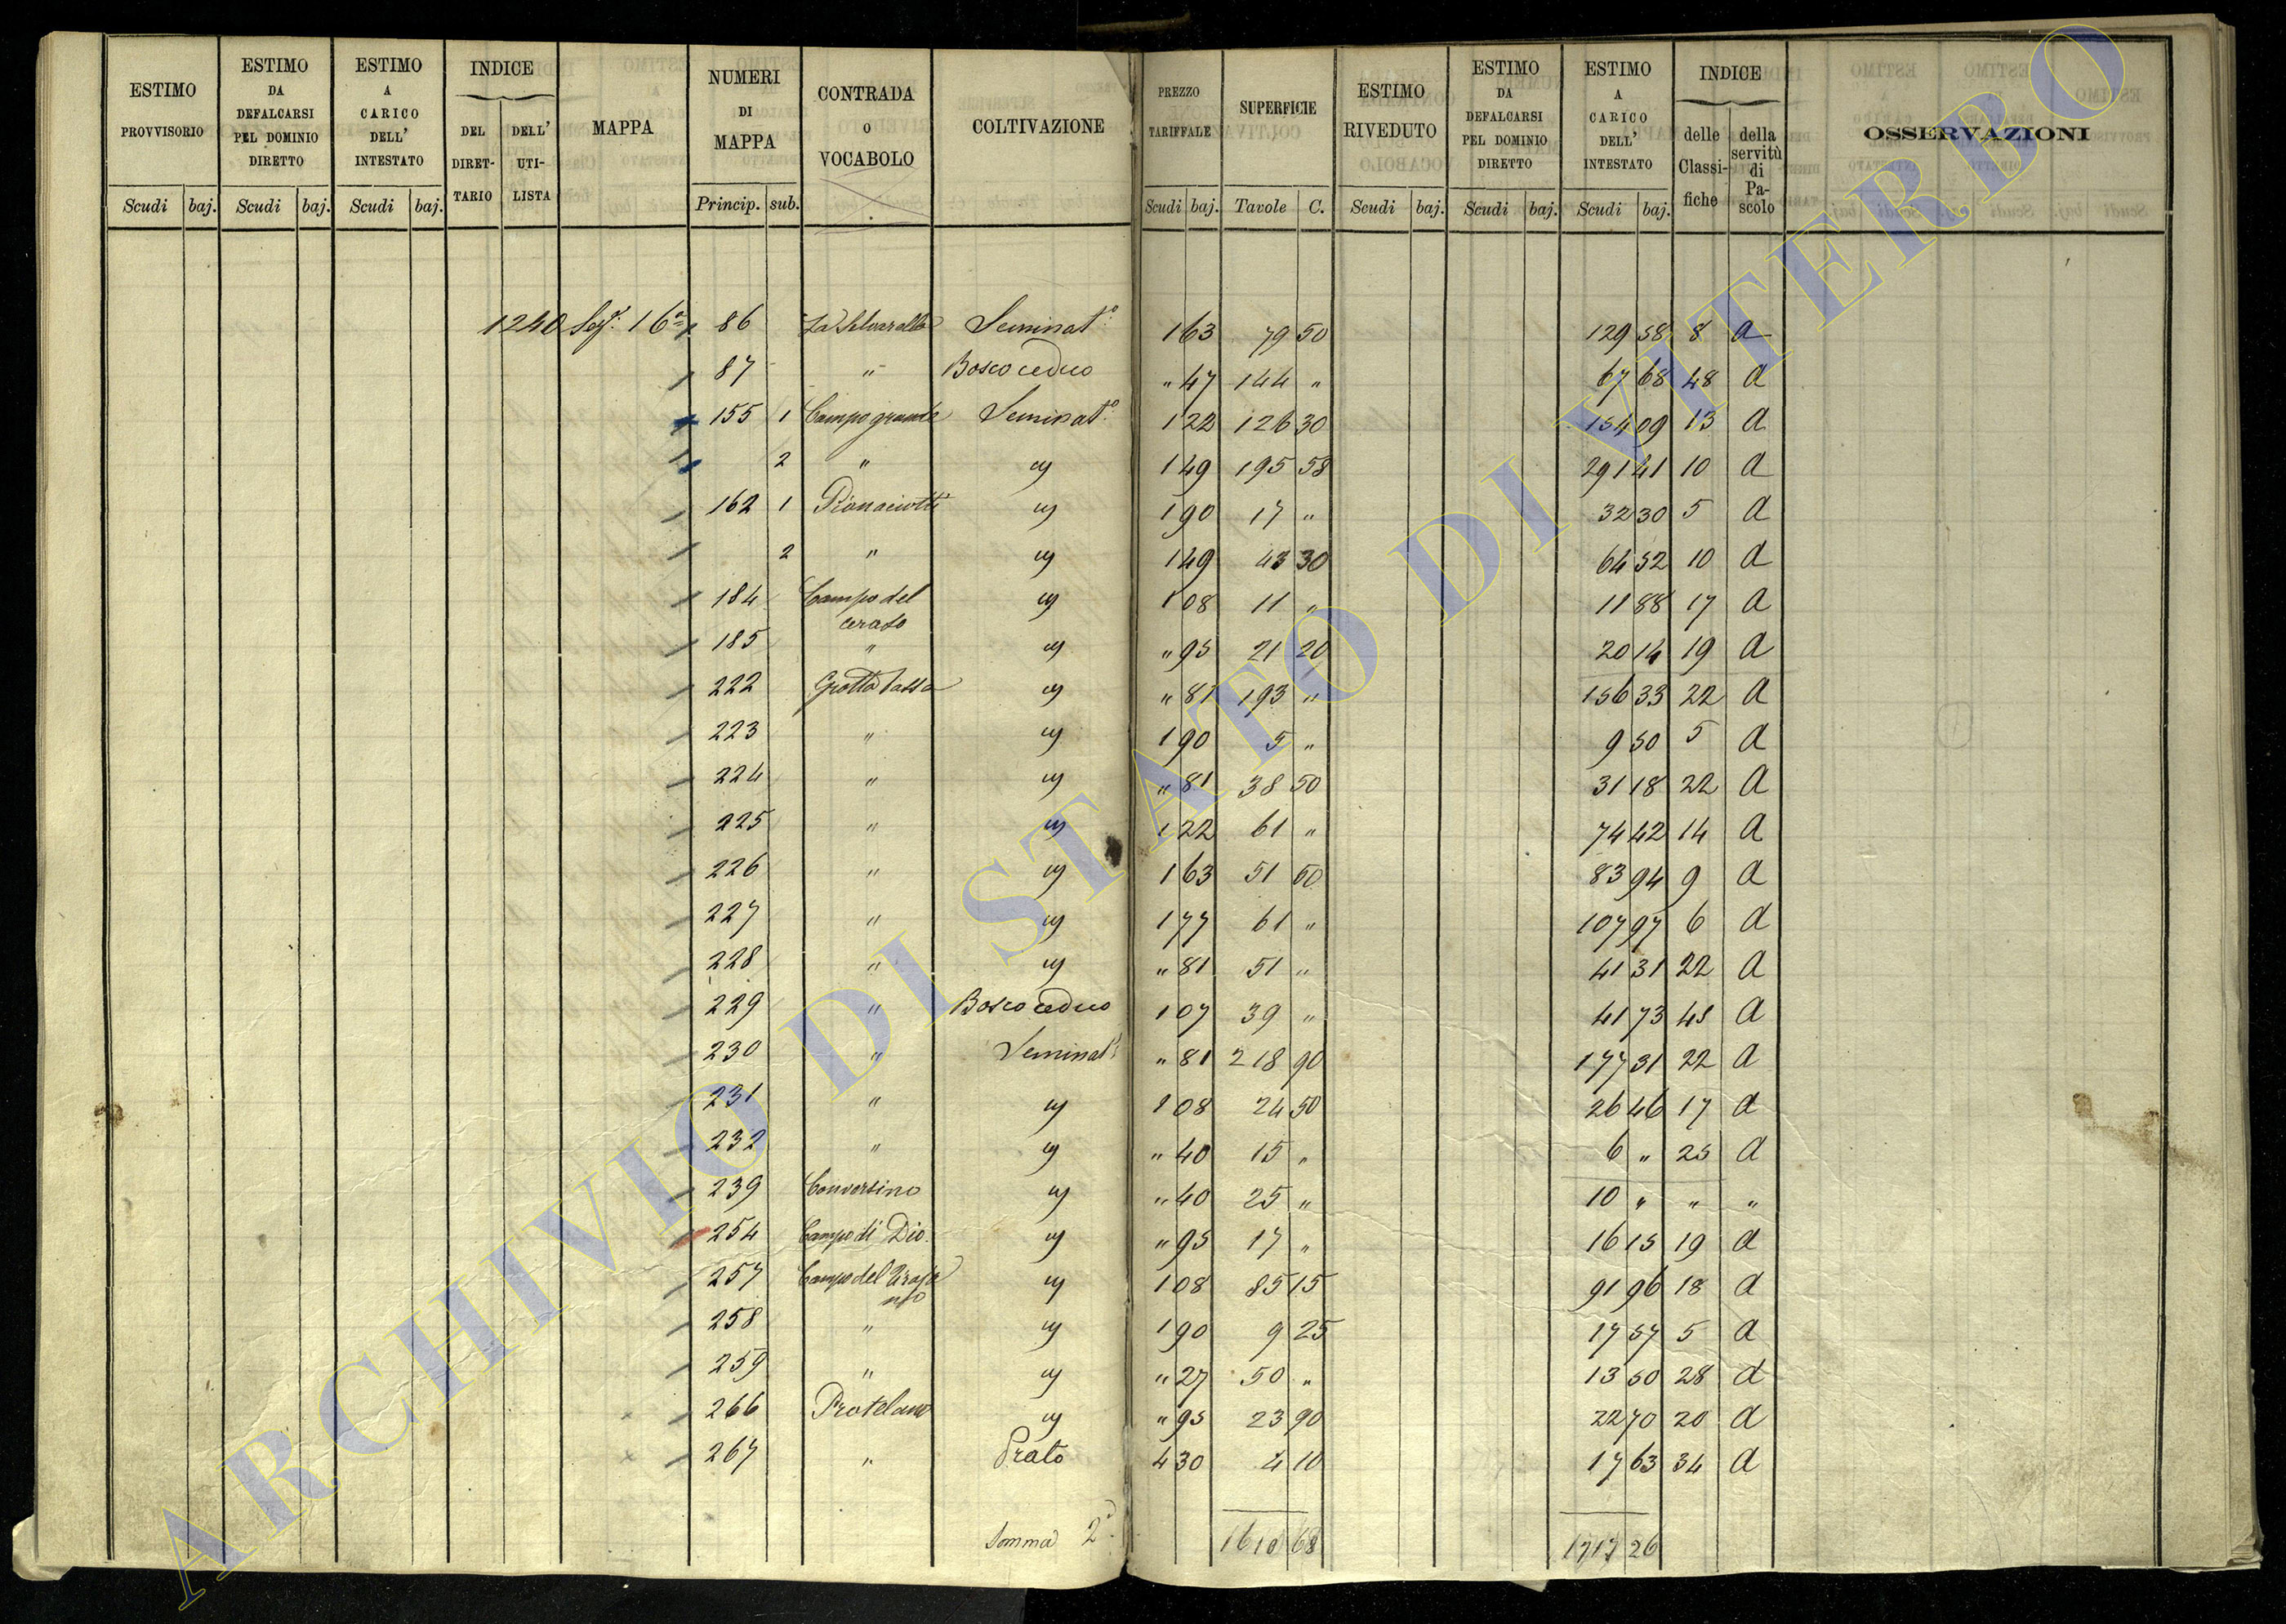 ESTIMO PROVVISORIO | ESTIMO DA DEFALCARSI PEL DOMINIO DIRETTO | ESTIMO A CARICO DELL' INTESTATO | INDICE DEL DIRETTARIO | DELL' UTILISTA | MAPPA | NUMERI DI MAPPA | CONTRADA O VOCABOLO | COLTIVAZIONE | PREZZO TARIFFALE | SUPERFICIE | ESTIMO RIVEDUTO | ESTIMO DA DEFALCARSI PEL DOMINIO DIRETTO | ESTIMO A CARICO DELL' INTESTATO | INDICE delle Classifiche | della servitù di Pascolo | OSSERVAZIONI
Scudi baj. Scudi baj. Scudi baj. Princip. sub. Scudi baj. Tavole C. Scudi baj. Scudi baj. Scudi baj.
1240 Seg. 16a 86 La Selvarella Seminato 1 63 79 50 129 58 8 a
87 " Bosco ceduo " 47 144 " 67 68 48 a
155 1 Campo grande Seminato 1 22 126 30 154 09 13 a
2 " " 1 49 195 58 291 41 10 a
162 1 " 1 90 17 " 32 30 5 a
2 " " 1 49 43 30 64 52 10 a
184 Campo del ceraso " 1 08 11 " 11 88 17 a
185 " " " 95 21 20 20 14 19 a
222 Grotta bassa " " 81 193 " 156 33 22 a
223 " " 1 90 5 " 9 50 5 a
224 " " " 81 38 50 31 18 22 a
225 " " 1 22 61 " 74 42 14 a
226 " " 1 63 51 50 83 94 9 a
227 " " 1 77 61 " 107 97 6 a
228 " " " 81 51 " 41 31 22 a
229 " Bosco ceduo 1 07 39 " 41 73 45 a
230 " Seminato " 81 218 90 177 31 22 a
231 " " 1 08 24 50 26 46 17 a
232 " " " 40 15 " 6 " 25 a
239 Conversino " " 40 25 " 10 " " "
254 Campo di Dio " " 95 17 " 16 15 19 a
257 Campo del " 1 08 85 15 91 96 18 a
258 " " 1 90 9 25 17 57 5 a
259 " " " 27 50 " 13 50 28 a
266 " " 95 23 90 22 70 20 a
267 " Prato 4 30 4 10 17 63 34 a
Somma 2a 1610 68 1717 26
ARCHIVIO DI STATO DI VITERBO